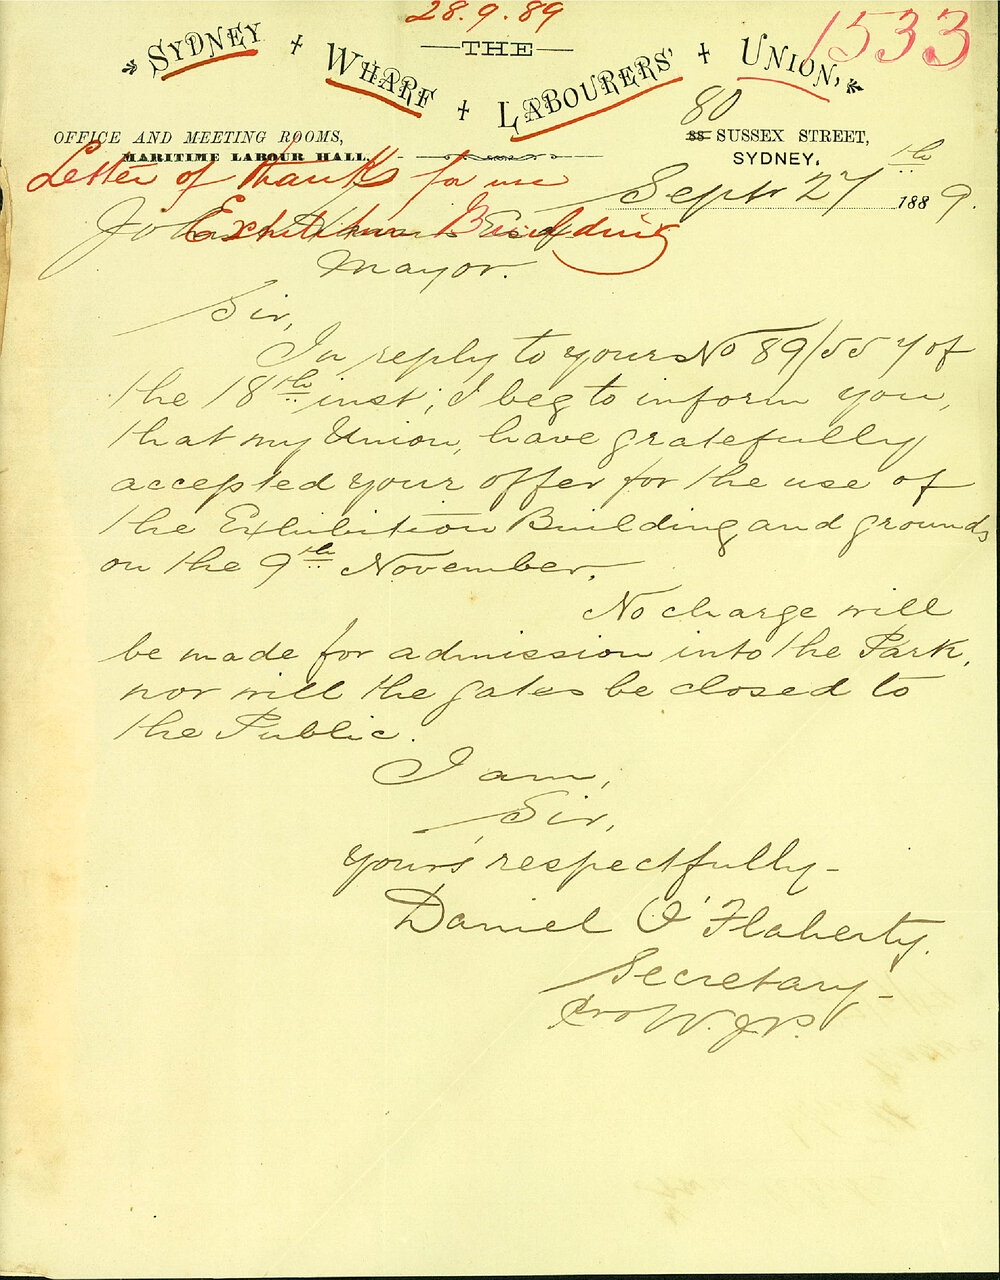 28.9.89
1533
THE
SYDNEY WHARF LABOURERS' UNION,
OFFICE AND MEETING ROOMS,
80
88 SUSSEX STREET,
MARITIME LABOUR HALL.
SYDNEY.
Letter of thanks for use
Exhibition Building
Sept 27th 1889.
John Esq
Mayor.
Sir,
In reply to yours No 89/557 of
the 18th inst; I beg to inform you,
that my Union, have gratefully
accepted your offer for the use of
the Exhibition Building and grounds
on the 9th November.
No charge will
be made for admission into the Park,
nor will the gates be closed to
the Public.
I am,
Sir,
yours respectfully-
Daniel O'Flaherty.
Secretary-
pro W.